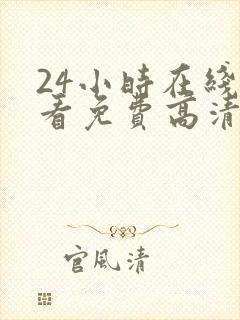 24小時在綫
看免費高清
官風清